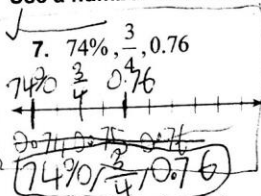 7. 74%, 3/4, 0.76
74% 3/4 0.76
0.74 0.75 0.76
74%, 3/4, 0.76